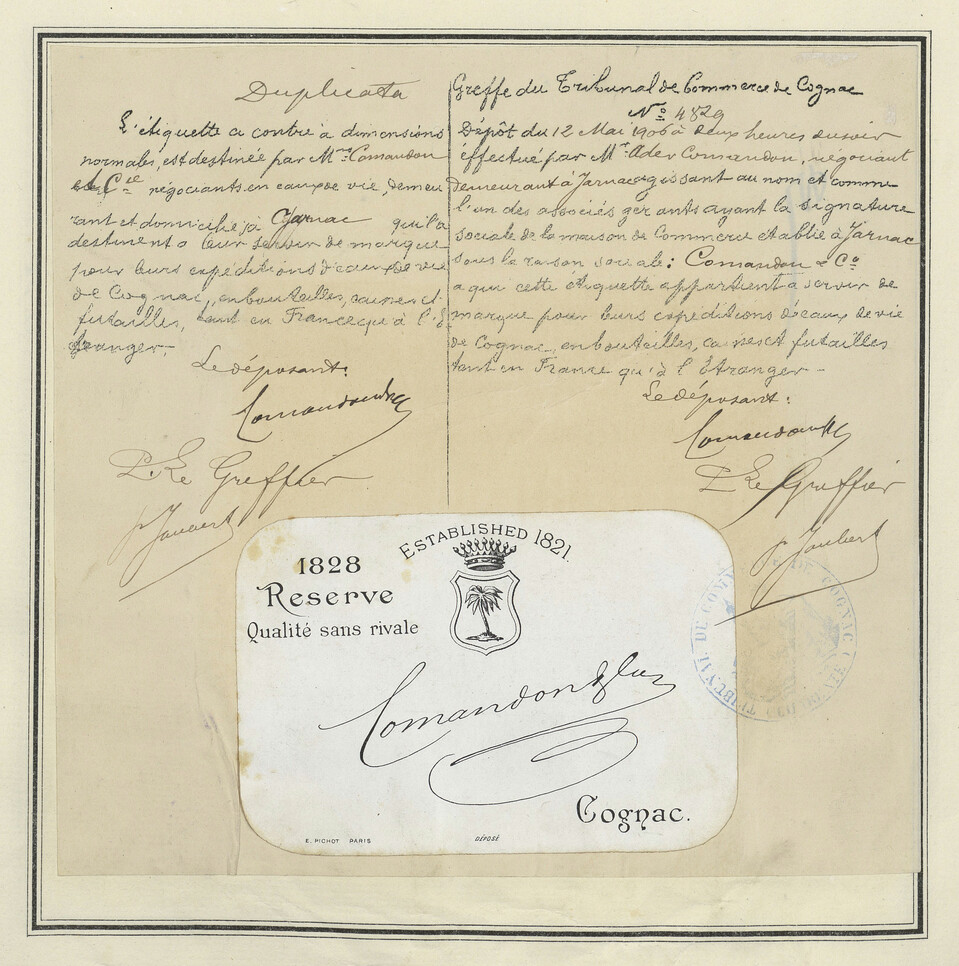 Duplicata
L'étiquette ci contre à dimensions
normales, est destinée par Mrs Comandon
et Cie négociants en eaux de vie, demeu
rant et domiciliés à Jarnac qu'il a
destinent à leur servir de marque
pour leurs expéditions d'eaux de vie
de Cognac, en bouteilles, caisses et
futailles, tant en France qu'à l'é
tranger.
Le déposant:
Comandon & Co
P. Le Greffier
Joubert
Greffe du Tribunal de Commerce de Cognac
No 4829
Dépôt du 12 Mai 1906 à deux heures du soir
éffectué par Mr Ader Comandon, négociant
demeurant à Jarnac agissant au nom et comme
l'un des associés gérants ayant la signature
sociale de la maison de Commerce établie à Jarnac
sous la raison sociale: Comandon & Co
a qui cette étiquette appartient à servir de
marque pour leurs expéditions d'eaux de vie
de Cognac, en bouteilles, caisses et futailles
tant en France qu'à l'Étranger
Le déposant:
Comandon & Co
P. Le Greffier
Joubert
ESTABLISHED 1821.
1828
Reserve
Qualité sans rivale
Comandon & Co
Cognac.
E. PICHOT PARIS
DÉPOSÉ
TRIBUNAL DE COMM DE COGNAC (CHARENTE)